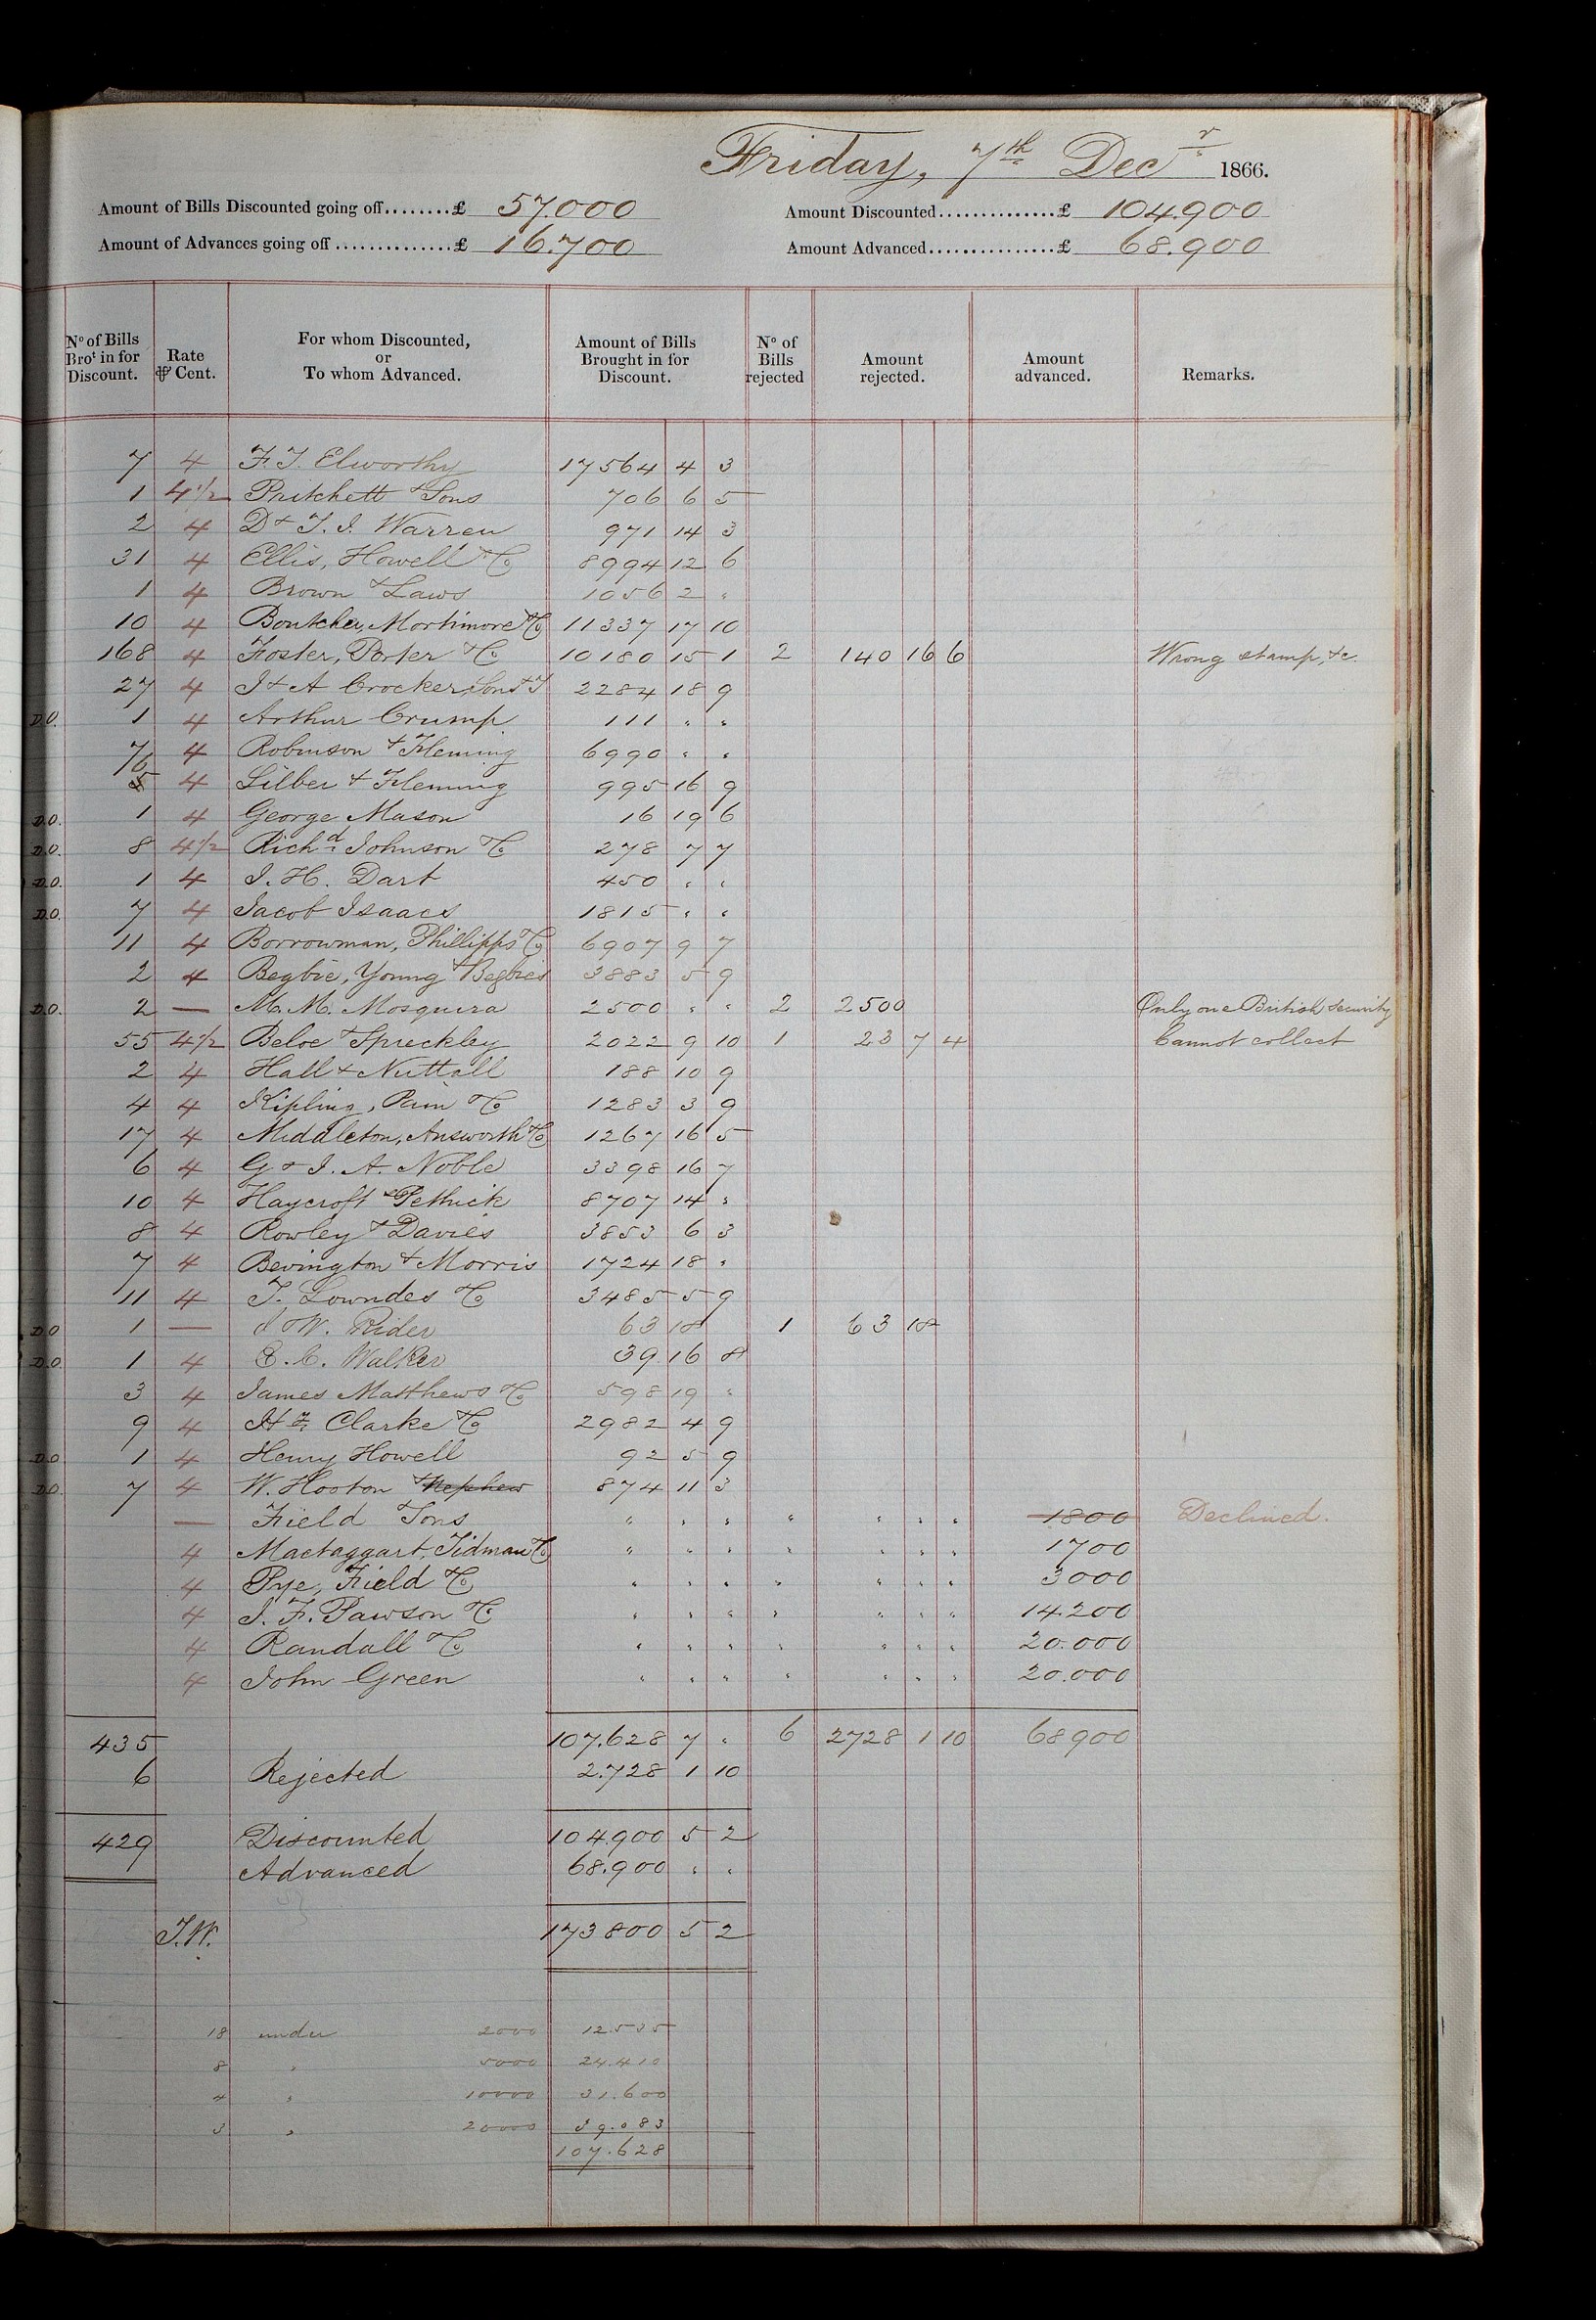 Friday, 7th Decr 1866.
Amount of Bills Discounted going off........£ 57.000 Amount Discounted..............£ 104.900
Amount of Advances going off..............£ 16.700 Amount Advanced...............£ 68.900
No of Bills Brot in for Discount. Rate ⅌ Cent. For whom Discounted, or To whom Advanced. Amount of Bills Brought in for Discount. No of Bills rejected Amount rejected. Amount advanced. Remarks.
7 4 F. T. Elworthy 17564 4 3
1 4½ Pritchett & Sons 706 6 5
2 4 D & T. I. Warren 971 14 3
31 4 Ellis, Howell & Co 8994 12 6
1 4 Brown & Laws 1056 2 "
10 4 Boutcher, Mortimore & Co 11337 17 10
168 4 Foster, Porter & Co 10180 15 1 2 140 16 6 Wrong stamp, &c.
27 4 I & A Crocker, Sons & 2284 18 9
D.O. 1 4 Arthur Crump 111 " "
7 4 Robinson & Fleming 6990 " "
6 4 Silber & Fleming 995 16 9
D.O. 1 4 George Mason 16 19 6
D.O. 8 4½ Richd Johnson & Co 278 7 7
D.O. 1 4 I. H. Dart 450 " "
D.O. 7 4 Jacob Isaacs 1815 " "
11 4 Borrowman, Phillipps & Co 6907 9 7
2 4 Begbie, Young & Begbies 3883 5 9
D.O. 2 — M. M. Mosquera 2500 " " 2 2500 Only one British security
55 4½ Beloe & Spreckley 2022 9 10 1 23 7 4 Cannot collect
2 4 Hall & Nuttall 188 10 9
4 4 Kipling, Pain & Co 1283 3 9
17 4 Middleton, Answorth & Co 1267 16 5
6 4 G & I. A. Noble 3398 16 7
10 4 Haycroft & Pethick 8707 14 "
8 4 Rowley & Davies 3853 6 3
7 4 Bevington & Morris 1724 18 "
11 4 T. Lowndes & Co 3485 5 9
D.O. 1 — & W. Rider 63 18 1 63 18
D.O. 1 4 E. C. Walker 39 16 8
3 4 James Matthews & Co 598 19 "
9 4 Hy Clarke & Co 2982 4 9
D.O. 1 4 Henry Howell 92 5 9
D.O. 7 4 W. Hooton & Nephew 874 11 3
— Field & Sons " " " " " " " 1800 Declined.
4 Mactaggart, Tidman & Co " " " " " " " 1700
4 Pye, Field & Co " " " " " " " 3000
4 J. F. Pawson & Co " " " " " " " 14.200
4 Randall & Co " " " " " " " 20.000
4 John Green " " " " " " " 20.000
435 107.628 7 " 6 2728 1 10 68900
6 Rejected 2.728 1 10
429 Discounted 104.900 5 2
Advanced 68.900 " "
T.W. 173800 5 2
18 under 2000 12.535
8 " 5000 24.410
4 " 10000 31.600
3 " 20000 39.083
107.628